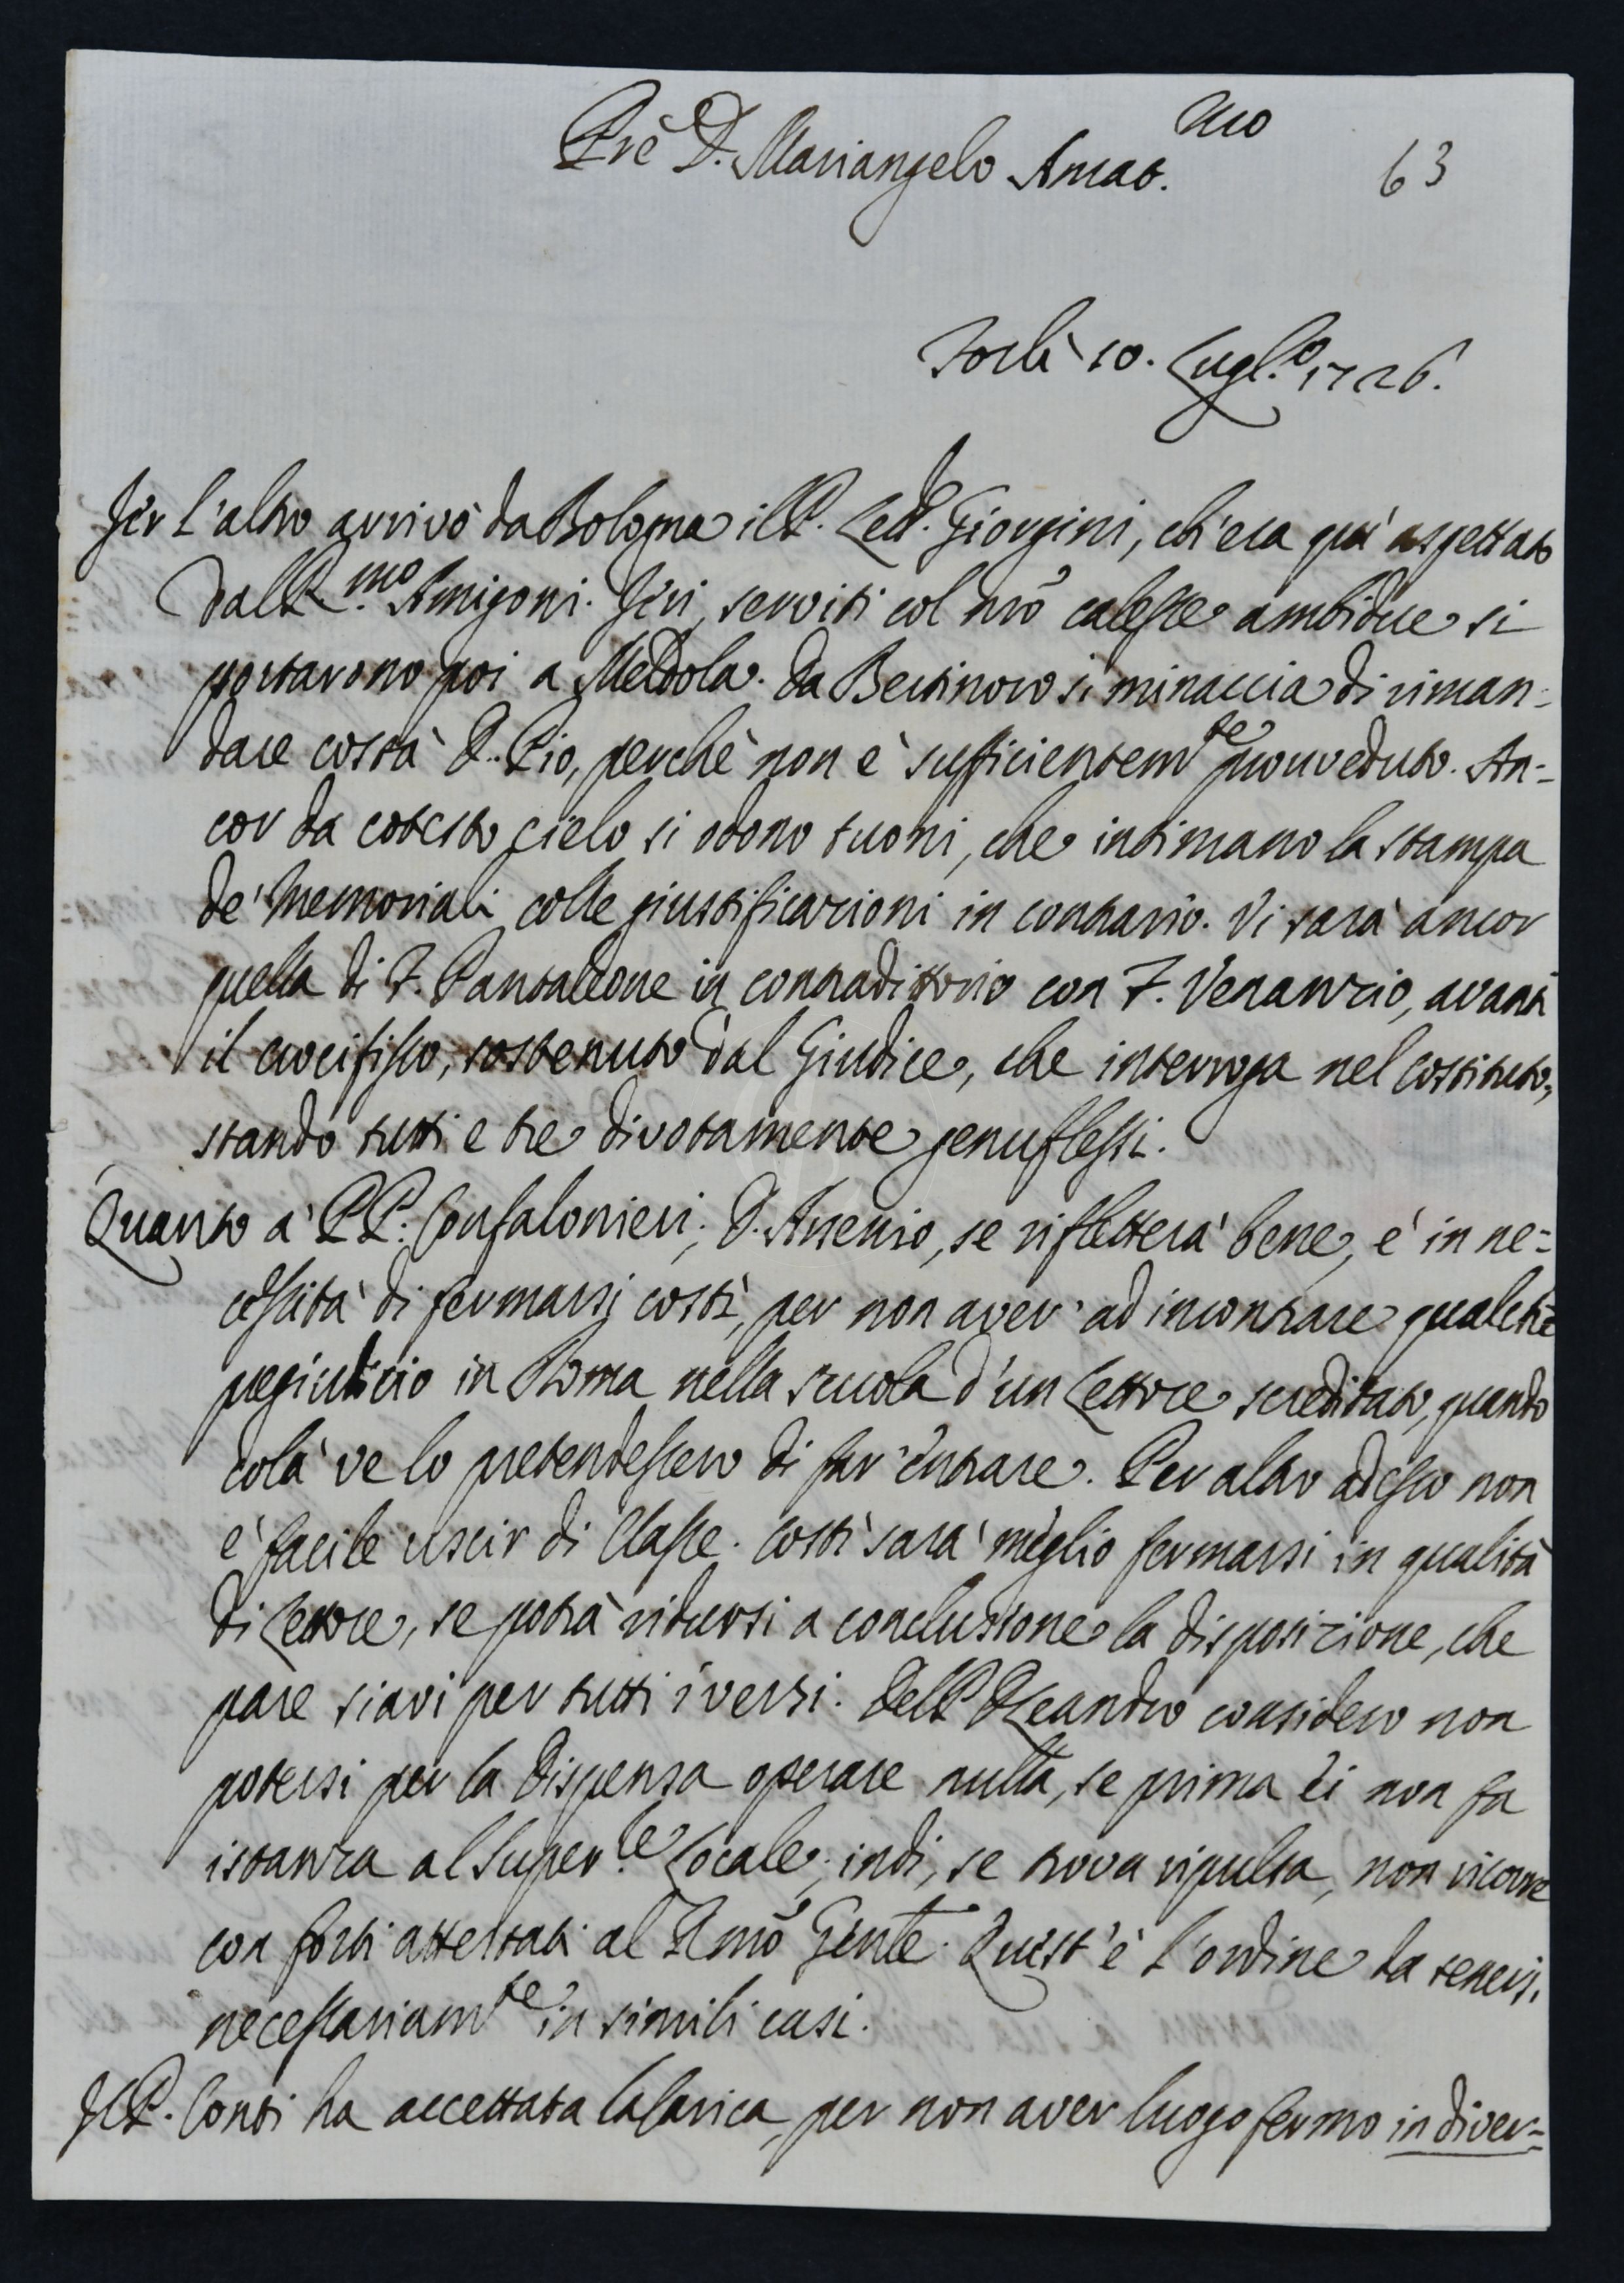 Prē D. Mariangelo Amat.mo
63
Forlì 10. Lugl.o 1726.
Jer l'altro arrivò da Bologna il P. Lett. Giorgini, ch'era quì aspettato
dal R.mo Amigoni. Jeri, serviti col nrō calesse ambidue si
portarono poi a Meldola. da Bertinoro si minaccia di riman=
dare costà D. Pio, perchè non è sufficientem.te prouveduto. An=
cor da cotesto cielo si odono tuoni, che intimano la stampa
de' memoriali colle giustificazioni in contrario. Vi sarà ancor
quella di F. Pantaleone in contradittorio con F. Venanzio, avanti
il crocifisso, sostenuto dal Giudice, che interroga nel costituto,
stando tutti e tre divotamente genuflessi.
Quanto a' PP. Confalonieri; D. Arsenio, se rifletterà bene, è in ne=
cessità di fermarsi costì, per non aver' ad incontrare qualche
pregiudicio in Roma nella scuola d'un Lettore screditato, quando
colà ve lo pretendessero di far' entrare. Per altro adesso non
è facile uscir di Classe. Costì sarà meglio fermarsi in qualità
di Lettore, se potrà ridursi a conclusione la disposizione, che
pare siavi per tutti i versi. Del P. D. Leandro considero non
potersi per la dispensa operare nulla, se prima ei non fa
istanza al Super.re Locale; indi, se trova ripulsa, non ricorre
con forti attestati al Rmō Genle. Quest'è l'ordine da tenersi
necessariam.te in simili casi.
Il P. Conti ha accettata la carica, per non aver luogo fermo in diver=